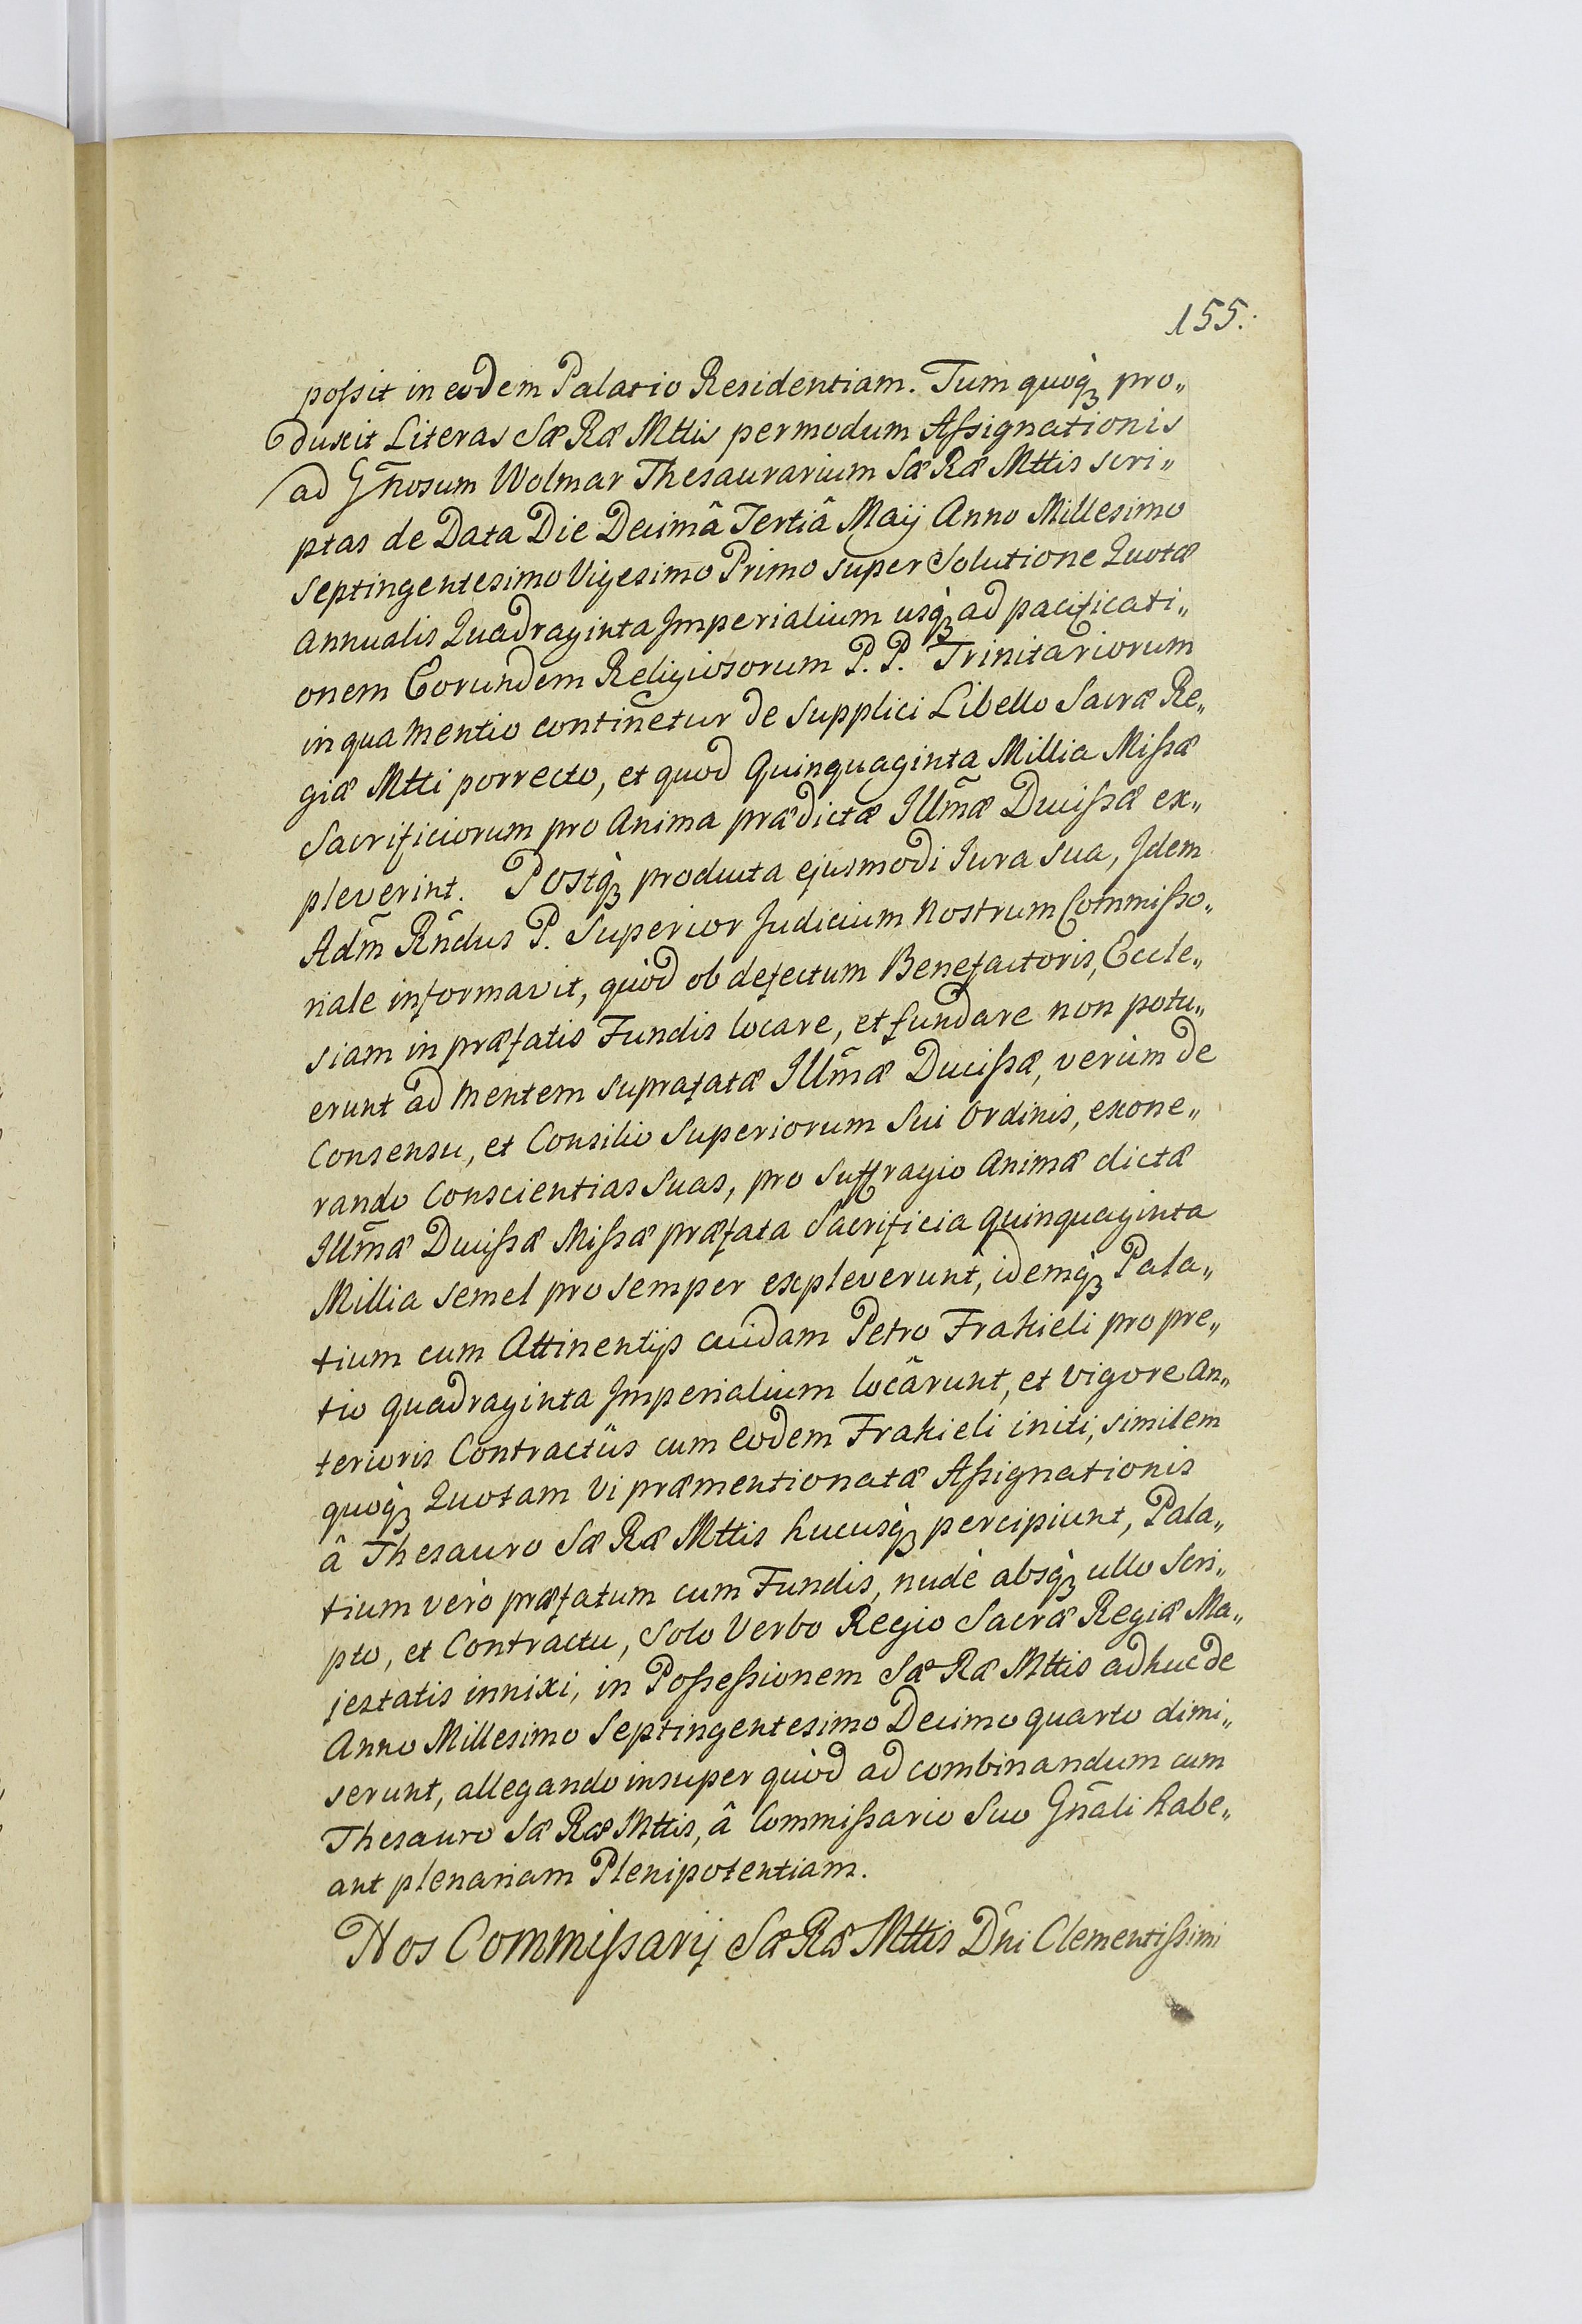 155.
possit in eodem Palatio Residentiam. Tum quoq̀ꝫ pro„
duxit Literas Sæ Ræ Mttis per modum Assignationis
ad Gn̄osum Wolmar Thesaurarium Sæ Ræ Mttis scri„
ptas de Data Die Decimâ Tertiâ Maij Anno Millesimo
septingentesimo Vigesimo Primo super Solutione Quotæ
annualis Quadraginta Imperialium usq̀ꝫ ad pacificati„
onem Eorundem Religiosorum P. P. Trinitariorum
in qua mentio continetur de supplici Libello Sacræ Re„
giæ Mtti porrecto, et quod Quinquaginta Millia Missæ
Sacrificiorum pro Anima prædictæ Illm̄æ Ducissæ ex„
pleverint. Postq̀ꝫ producta ejusmodi Iura sua, Idem
Adm̄ Rn̄dus P. Superior Judicium nostrum Commisso„
riale informavit, quòd ob defectum Benefactoris, Eccle„
siam in præfatis Fundis locare, et fundare non potu„
erunt ad mentem suprafatæ Illm̄æ Ducissæ, verùm de
Consensu, et Consilio Superiorum Sui Ordinis, exone„
rando Conscientias suas, pro suffragio Animæ dictæ
Illm̄æ Ducissæ Missæ præfata Sacrificia Quinquaginta
Millia semel pro semper expleverunt, idemq̀ꝫ Pala„
tium cum Attinentijs cuidam Petro Frakieli pro pre„
tio quadraginta Imperialium locârunt, et vigore an„
terioris Contractûs cum eodem Frakieli initi, similem
quoq̀ꝫ Quotam vi præmentionatæ Assignationis
â Thesauro Sæ Ræ Mttis hucusq̀ꝫ percipiunt, Pala„
tium verò præfatum cum Fundis, nudè absq̀ꝫ ullo scri„
pto, et Contractu, solo Verbo Regio Sacræ Regiæ Ma„
jestatis innixi, in Possessionem Sæ Ræ Mttis adhuc de
Anno Millesimo Septingentesimo Decimo quarto dimi„
serunt, allegando insuper quòd ad combinandum cum
Thesauro Sæ Ræ Mttis, â Commissario Suo Gn̄ali habe„
ant plenariam Plenipotentiam.
Nos Commissarij Sæ Ræ Mttis Dni Clementissimi